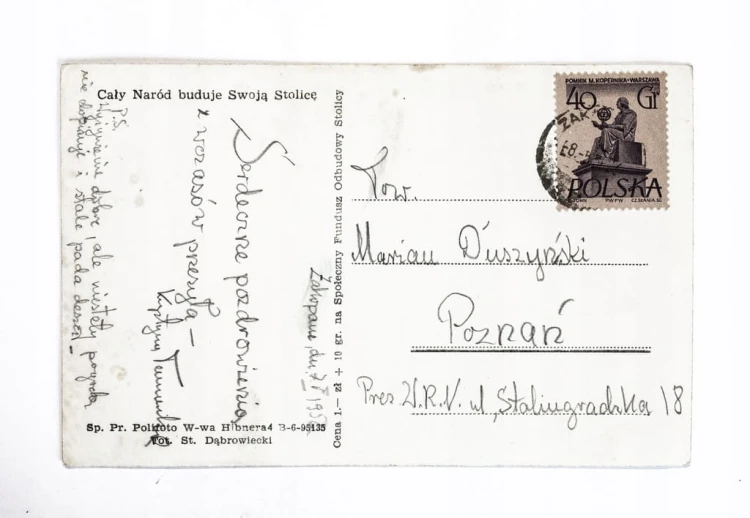 Cały Naród buduje Swoją Stolicę
Serdeczne pozdrowienia
z wczasów przesyła –
Krystyna
P.S.
Wyżywienie dobre, ale niestety pogoda
nie dopisuje i stale pada deszcz –
Sp. Pr. Polifoto W-wa Hibnera4 B-6-95135
Fot. St. Dąbrowiecki
Cena 1.— zł + 10 gr. na Społeczny Fundusz Odbudowy Stolicy
Zakopane, dn.
POMNIK M. KOPERNIKA • WARSZAWA
40 Gr
POLSKA
PWPW
ZAK
Tow.
Marian Duszyński
Poznań
Prez. W.R.N. ul. Stalingradzka 18